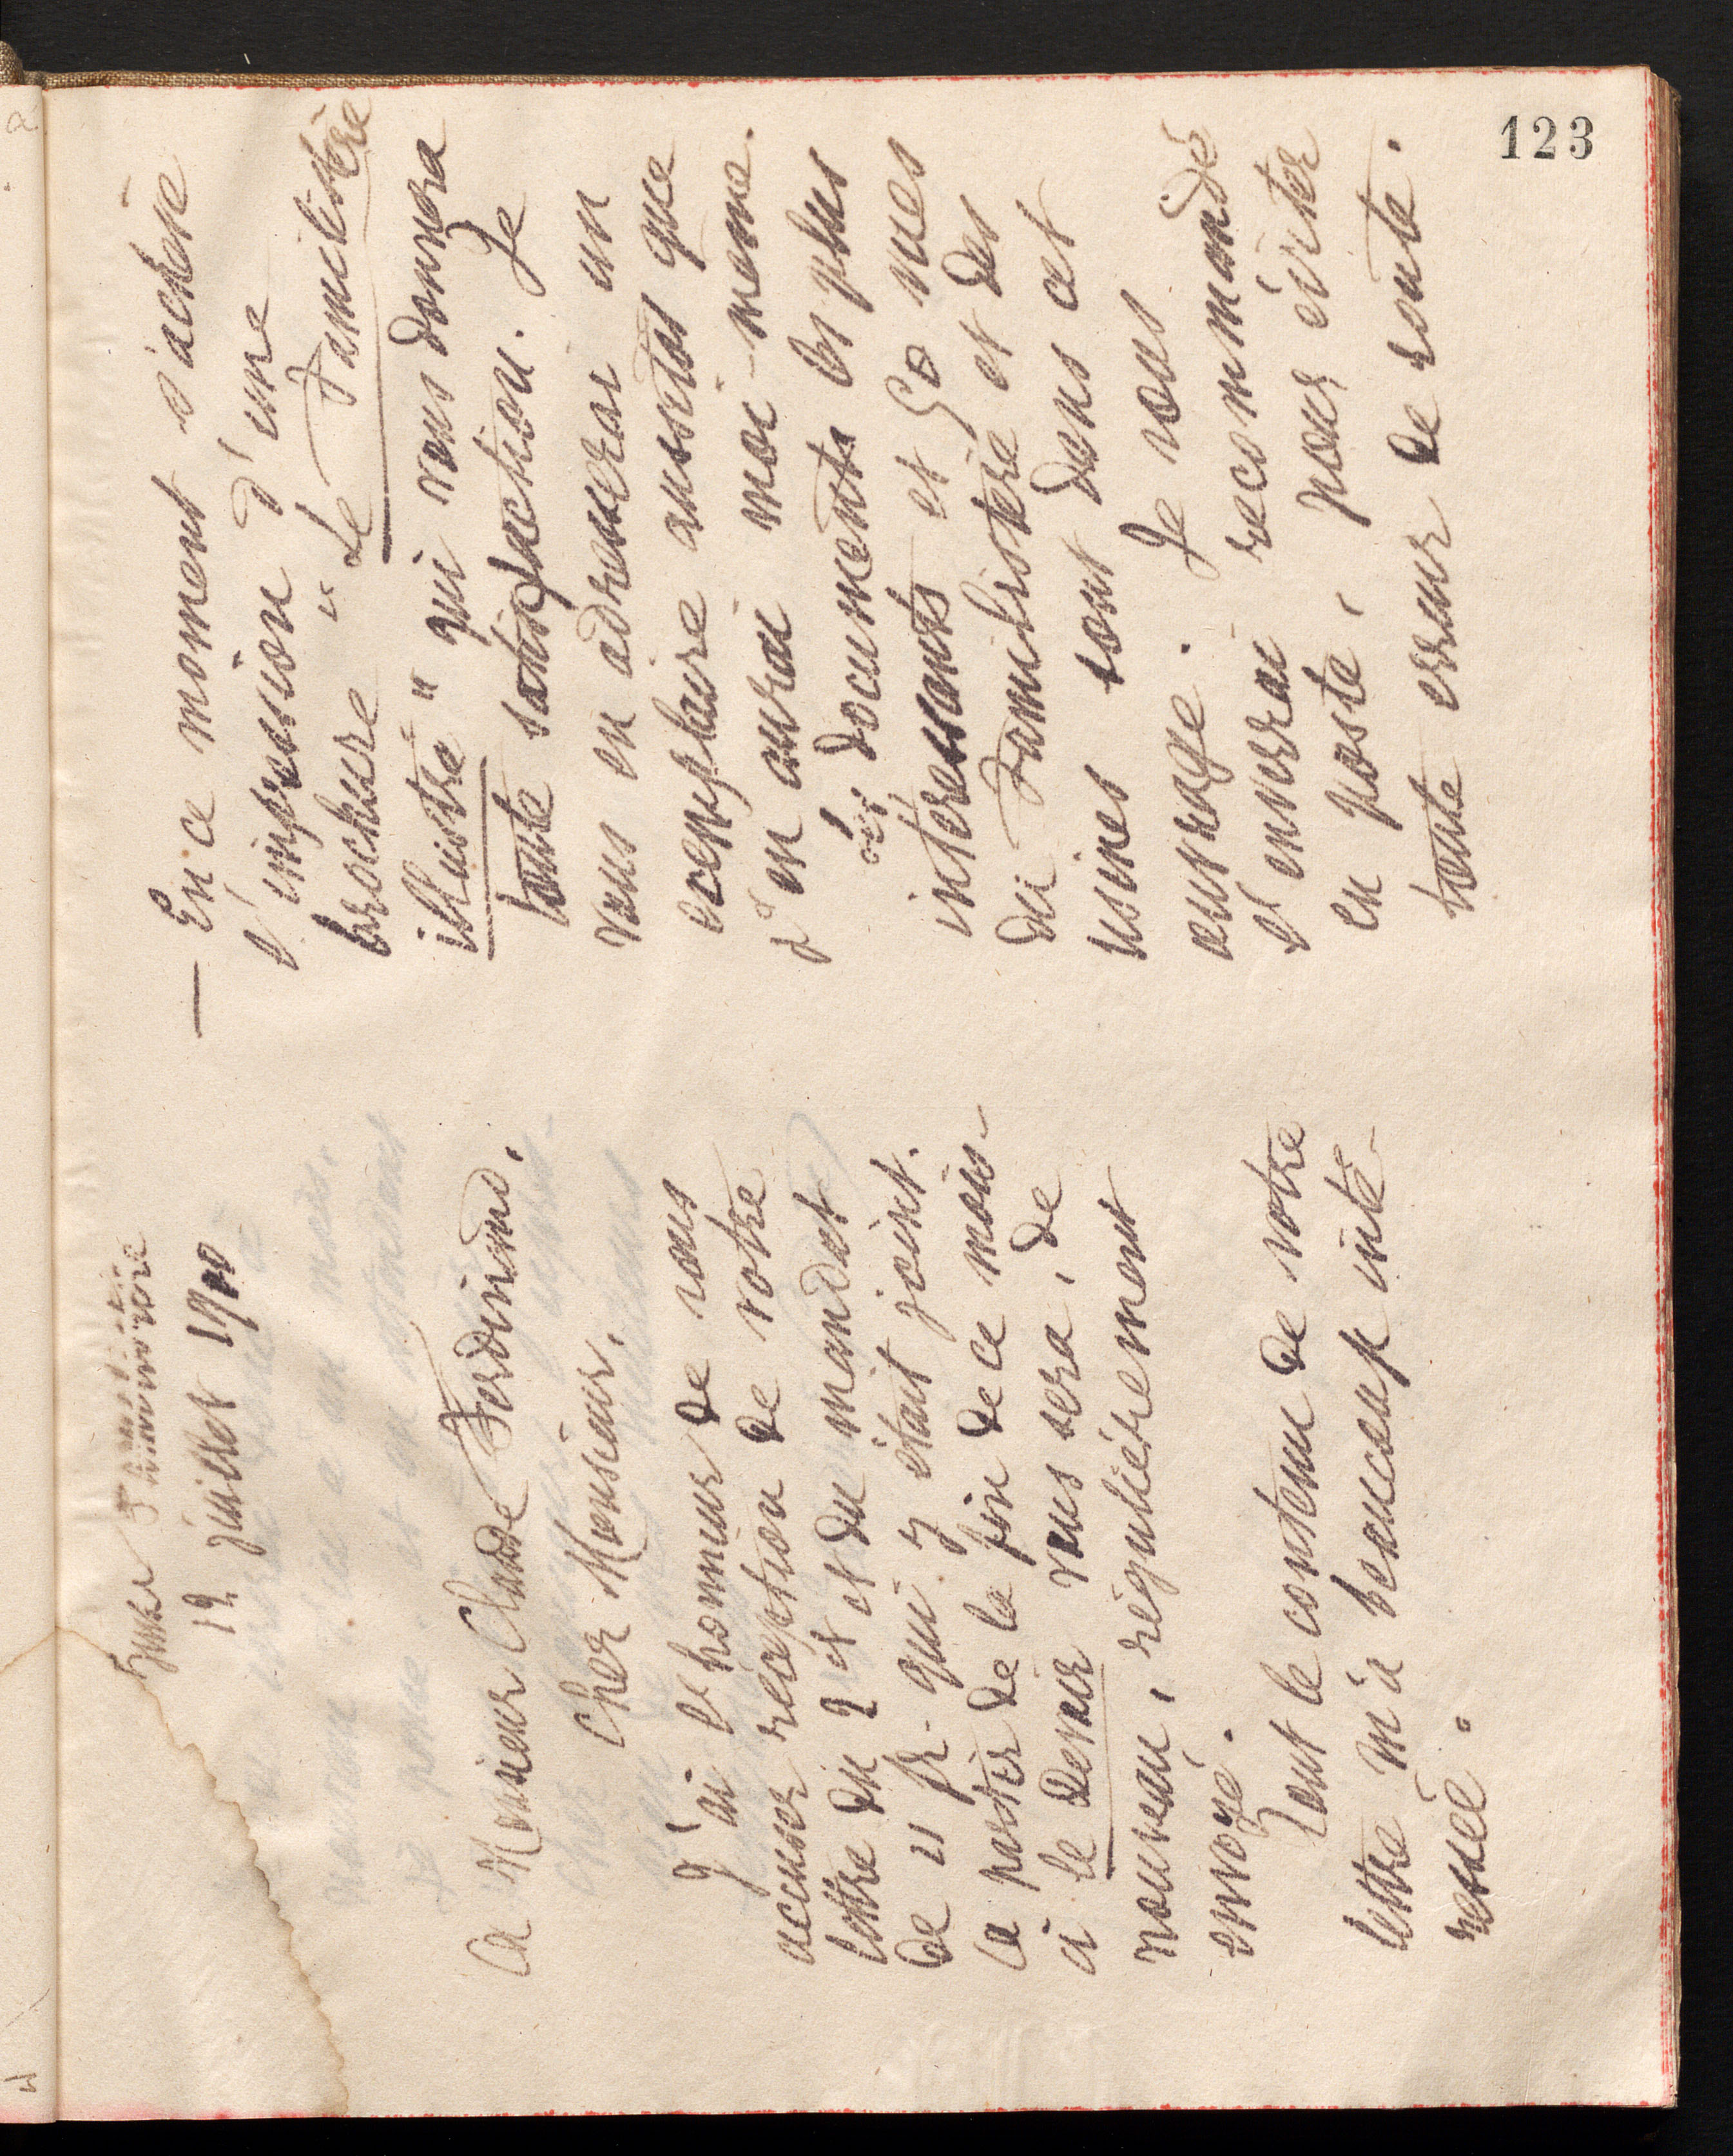 123
Guise Familistère
12 juillet 1900
A Monsieur Claude Ferdinand,
Cher Monsieur,
J'ai l'honneur de vous
accuser réception de votre
lettre du 9 ct et du mandat
de 11 fr. qui y était joint.
A partir de la fin de ce mois-
ci le Devoir vous sera, de
nouveau, régulièrement
envoyé.
Tout le contenu de votre
lettre m'a beaucoup inté-
ressée.
— En ce moment s'achève
l'impression d'une
brochure " Le Familistère
illustré " qui vous donnera
toute satisfaction. Je
vous en adresserai un
exemplaire aussitôt que
j'en aurai moi-même.
des documents les plus
intéressants et 50 vues
du Familistère et des
usines sont dans cet
ouvrage. Je vous
l'enverrai recommandé
en poste, pour éviter
toute erreur de route.